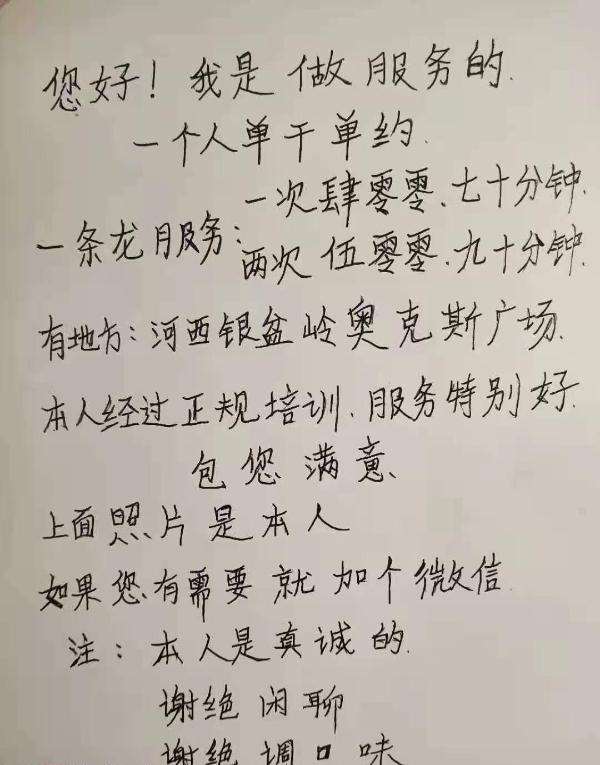 您好！我是做服务的.
一个人单干单约.
一条龙服务：
一次肆零零.七十分钟.
两次伍零零.九十分钟.
有地方：河西银盆岭奥克斯广场.
本人经过正规培训.服务特别好.
包您满意
上面照片是本人
如果您有需要就加个微信
注：本人是真诚的.
谢绝闲聊
谢绝调口味